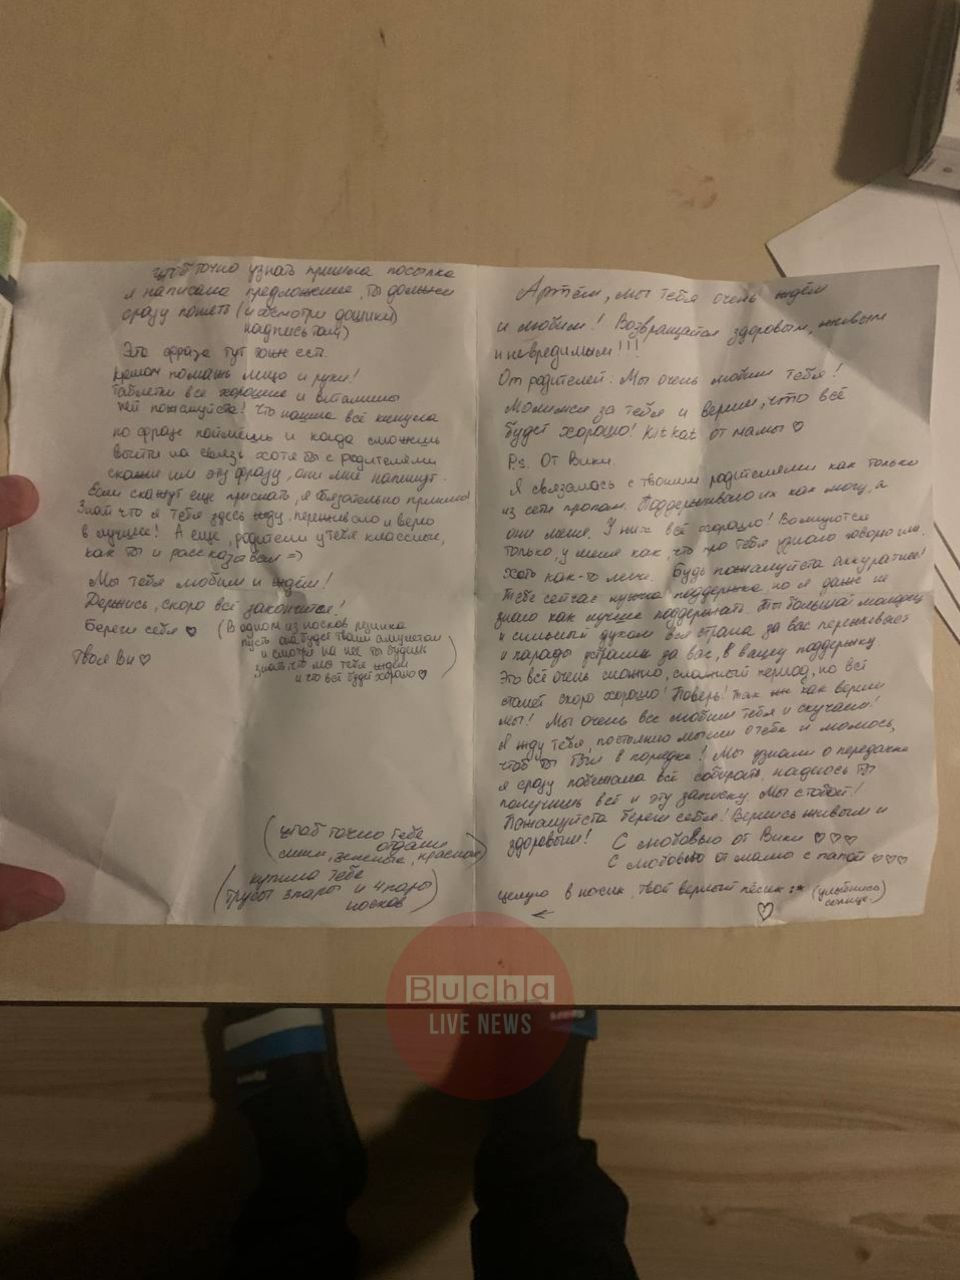 Артём, мы тебя очень ждём
и любим! Возвращайся здоровым, живым
и невредимым!!!
От родителей: Мы очень любим тебя!
Молимся за тебя и верим, что всё
будет хорошо! KitKat от мамы ♡
P.s. От Вики.
Я связалась с твоими родителями как только
из сети пропал. Поддерживаю их как могу, а
они меня. У них всё хорошо! Волнуются
только, у меня как, что про тебя узнаю говорю им.
Хоть как-то легче. Будь пожалуйста аккуратнее!
Тебе сейчас нужна поддержка, но я даже не
знаю как лучше поддержать. Ты большой молодец
и сильный духом вся страна за вас переживает
и парады за вас, в вашу поддержку
Это всё очень сложно, сложный период, но всё
станет скоро хорошо! Поверь! Так же как верим
мы! Мы очень все любим тебя и скучаем!
Я жду тебя, постоянно мысли о тебе и молюсь,
чтоб ты был в порядке! Мы узнали о передачке
я сразу побежала всё собирать, надеюсь ты
получишь всё и эту записку. Мы с тобой!
Пожалуйста береги себя! Вернись живым и
здоровым!
С любовью от Вики ♡♡♡
С любовью от мамы с папой ♡♡♡
целую в носик, твой верный пёсик :* (улыбнись
солнце)
♡
←
чтоб точно узнать пришла посылка
я написала предложение, ты должен
сразу понять (и осмотри дошики)
надпись там)
Эта фраза тут тоже есть.
кремом помажь лицо и руки!
таблетки все хорошие и витамины
пей пожалуйста! Что нашла всё
по фразе поймёшь и когда сможешь
выйти на связь хотя бы с родителями
скажи им эту фразу, они мне напишут.
Если скажут еще прислать, я обязательно пришлю!
Знай что я тебя здесь жду, переживаю и верю
в лучшее! А еще, родители у тебя классные,
как ты и рассказывал =)
Мы тебя любим и ждём!
Держись, скоро всё закончится!
Береги себя ♡
(В одном из носков резинка
пусть она будет твоим амулетом
и смотря на неё ты будешь
знать что мы тебя ждём
и что всё будет хорошо ♡)
Твоя Ви ♡
(чтоб точно тебе
отдали
синие, зеленые, красные)
(купила тебе
трусы 3 пары и 4 пары
носков)
Bucha
LIVE NEWS